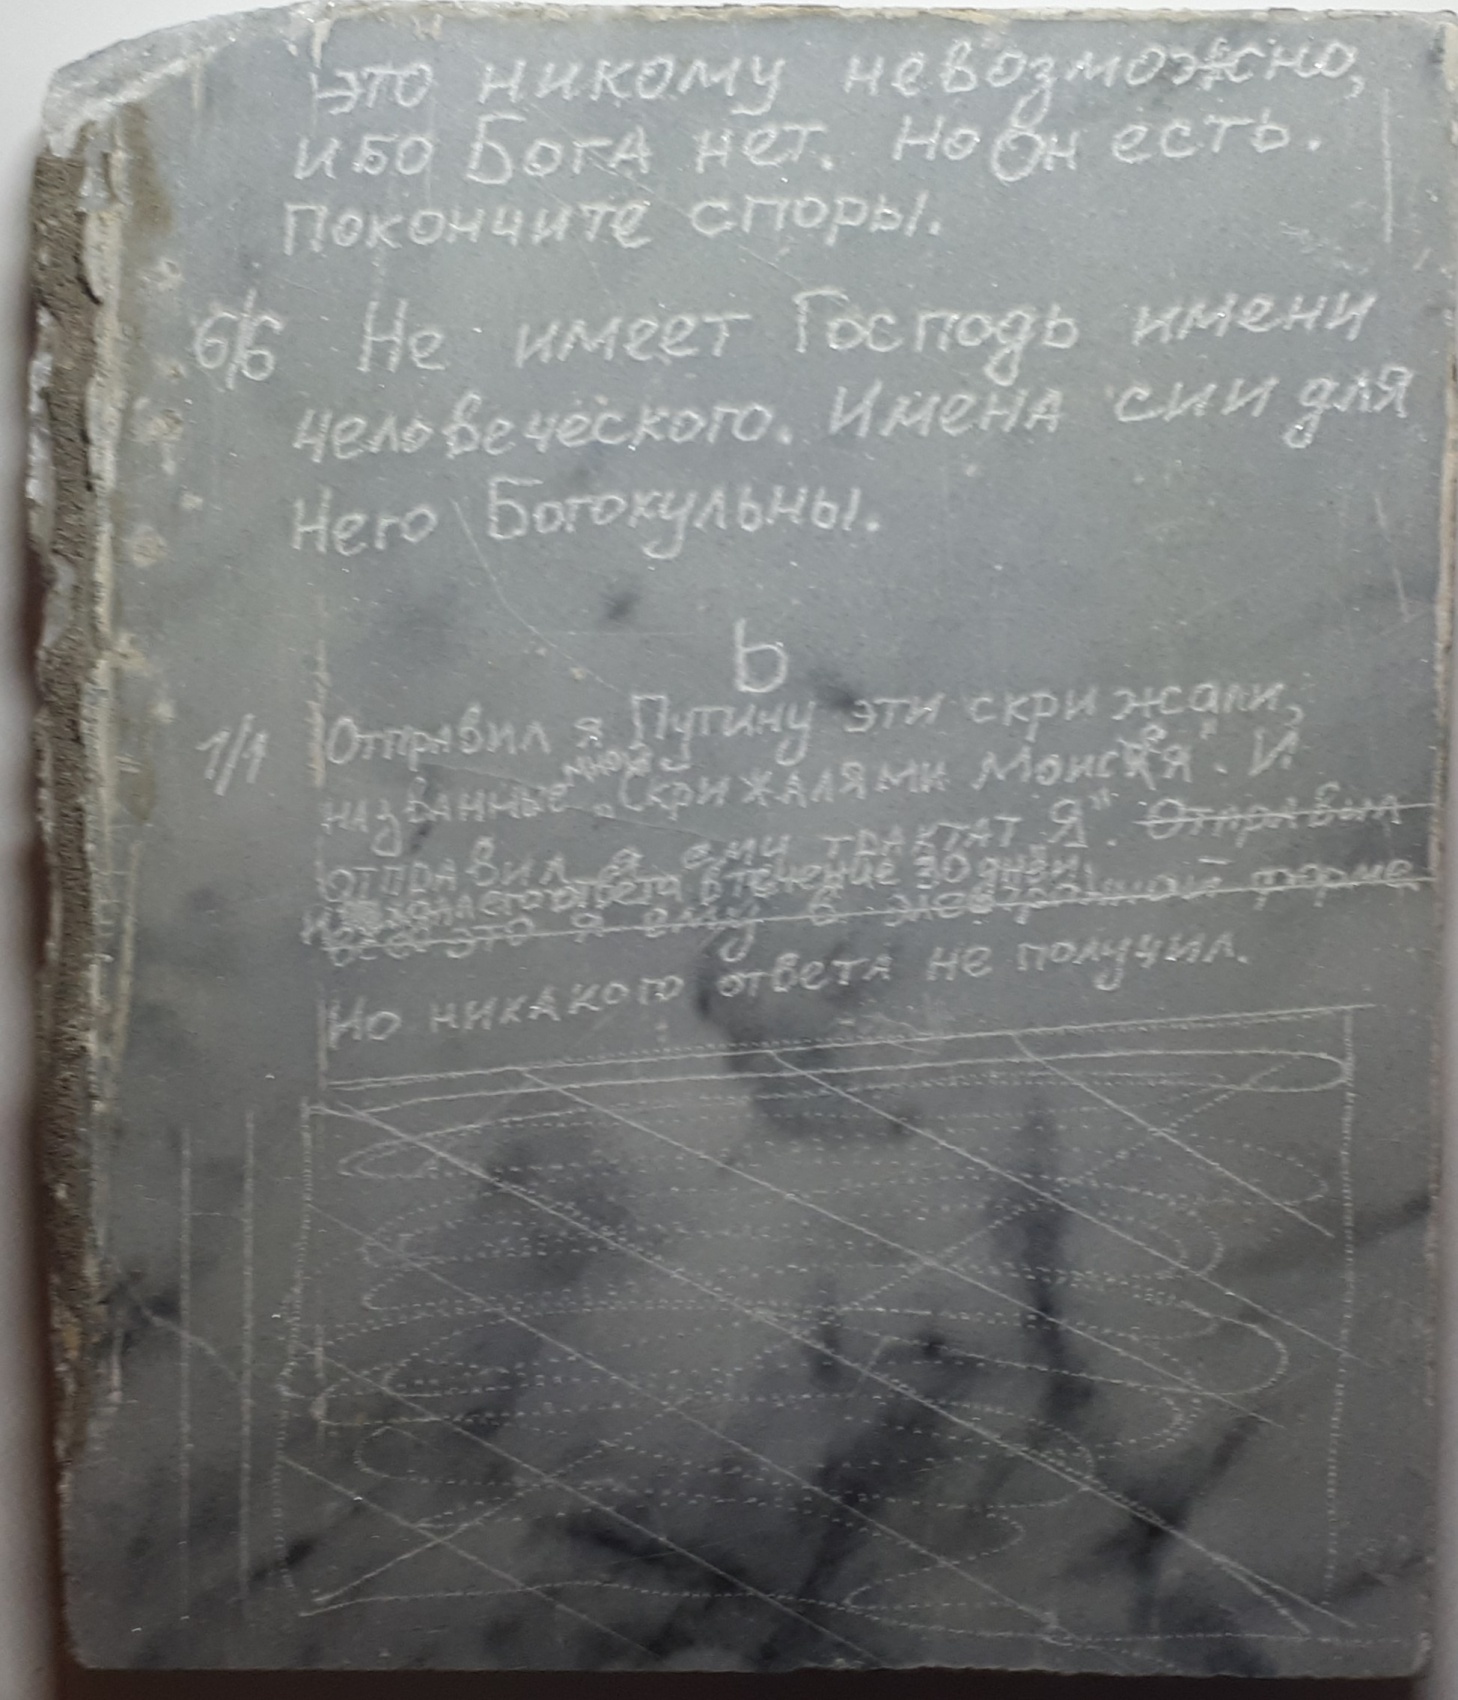 это никому невозможно,
ибо Бога нет. Но Он есть.
Покончите споры.
6/6 Не имеет Господь имени
человеческого. Имена сии для
Него Богокульны.
Ь
1/1 Отправил я Путину эти скрижали,
названные мной „Скрижалями
отправил я ему трактат „Я“. Отправил
ответа в течение 30 дней.
всё это я ему в форме
Но никакого ответа не получил.